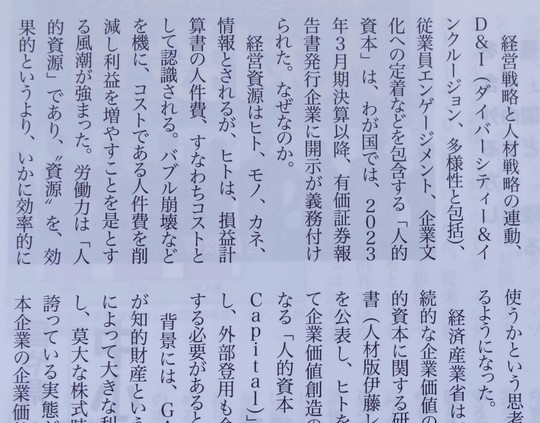 経営戦略と人材戦略の連動、
D&I（ダイバーシティー&イ
ンクルージョン、多様性と包括）、
従業員エンゲージメント、企業文
化への定着などを包含する「人的
資本」は、わが国では、2023
年3月期決算以降、有価証券報
告書発行企業に開示が義務付け
られた。なぜなのか。
経営資源はヒト、モノ、カネ、
情報とされるが、ヒトは、損益計
算書の人件費、すなわちコストと
して認識される。バブル崩壊など
を機に、コストである人件費を削
減し利益を増やすことを是とす
る風潮が強まった。労働力は「人
的資源」であり、〝資源〟を、効
果的というより、いかに効率的に
使うかという思考
るようになった。
経済産業省は
続的な企業価値の
的資本に関する研
書（人材版伊藤レ
を公表し、ヒトを
て企業価値創造の
なる「人的資本
Capital）」
し、外部登用も含
する必要があると
背景には、GA
が知的財産という
によって大きな利
し、莫大な株式時
誇っている実態が
本企業の企業価値